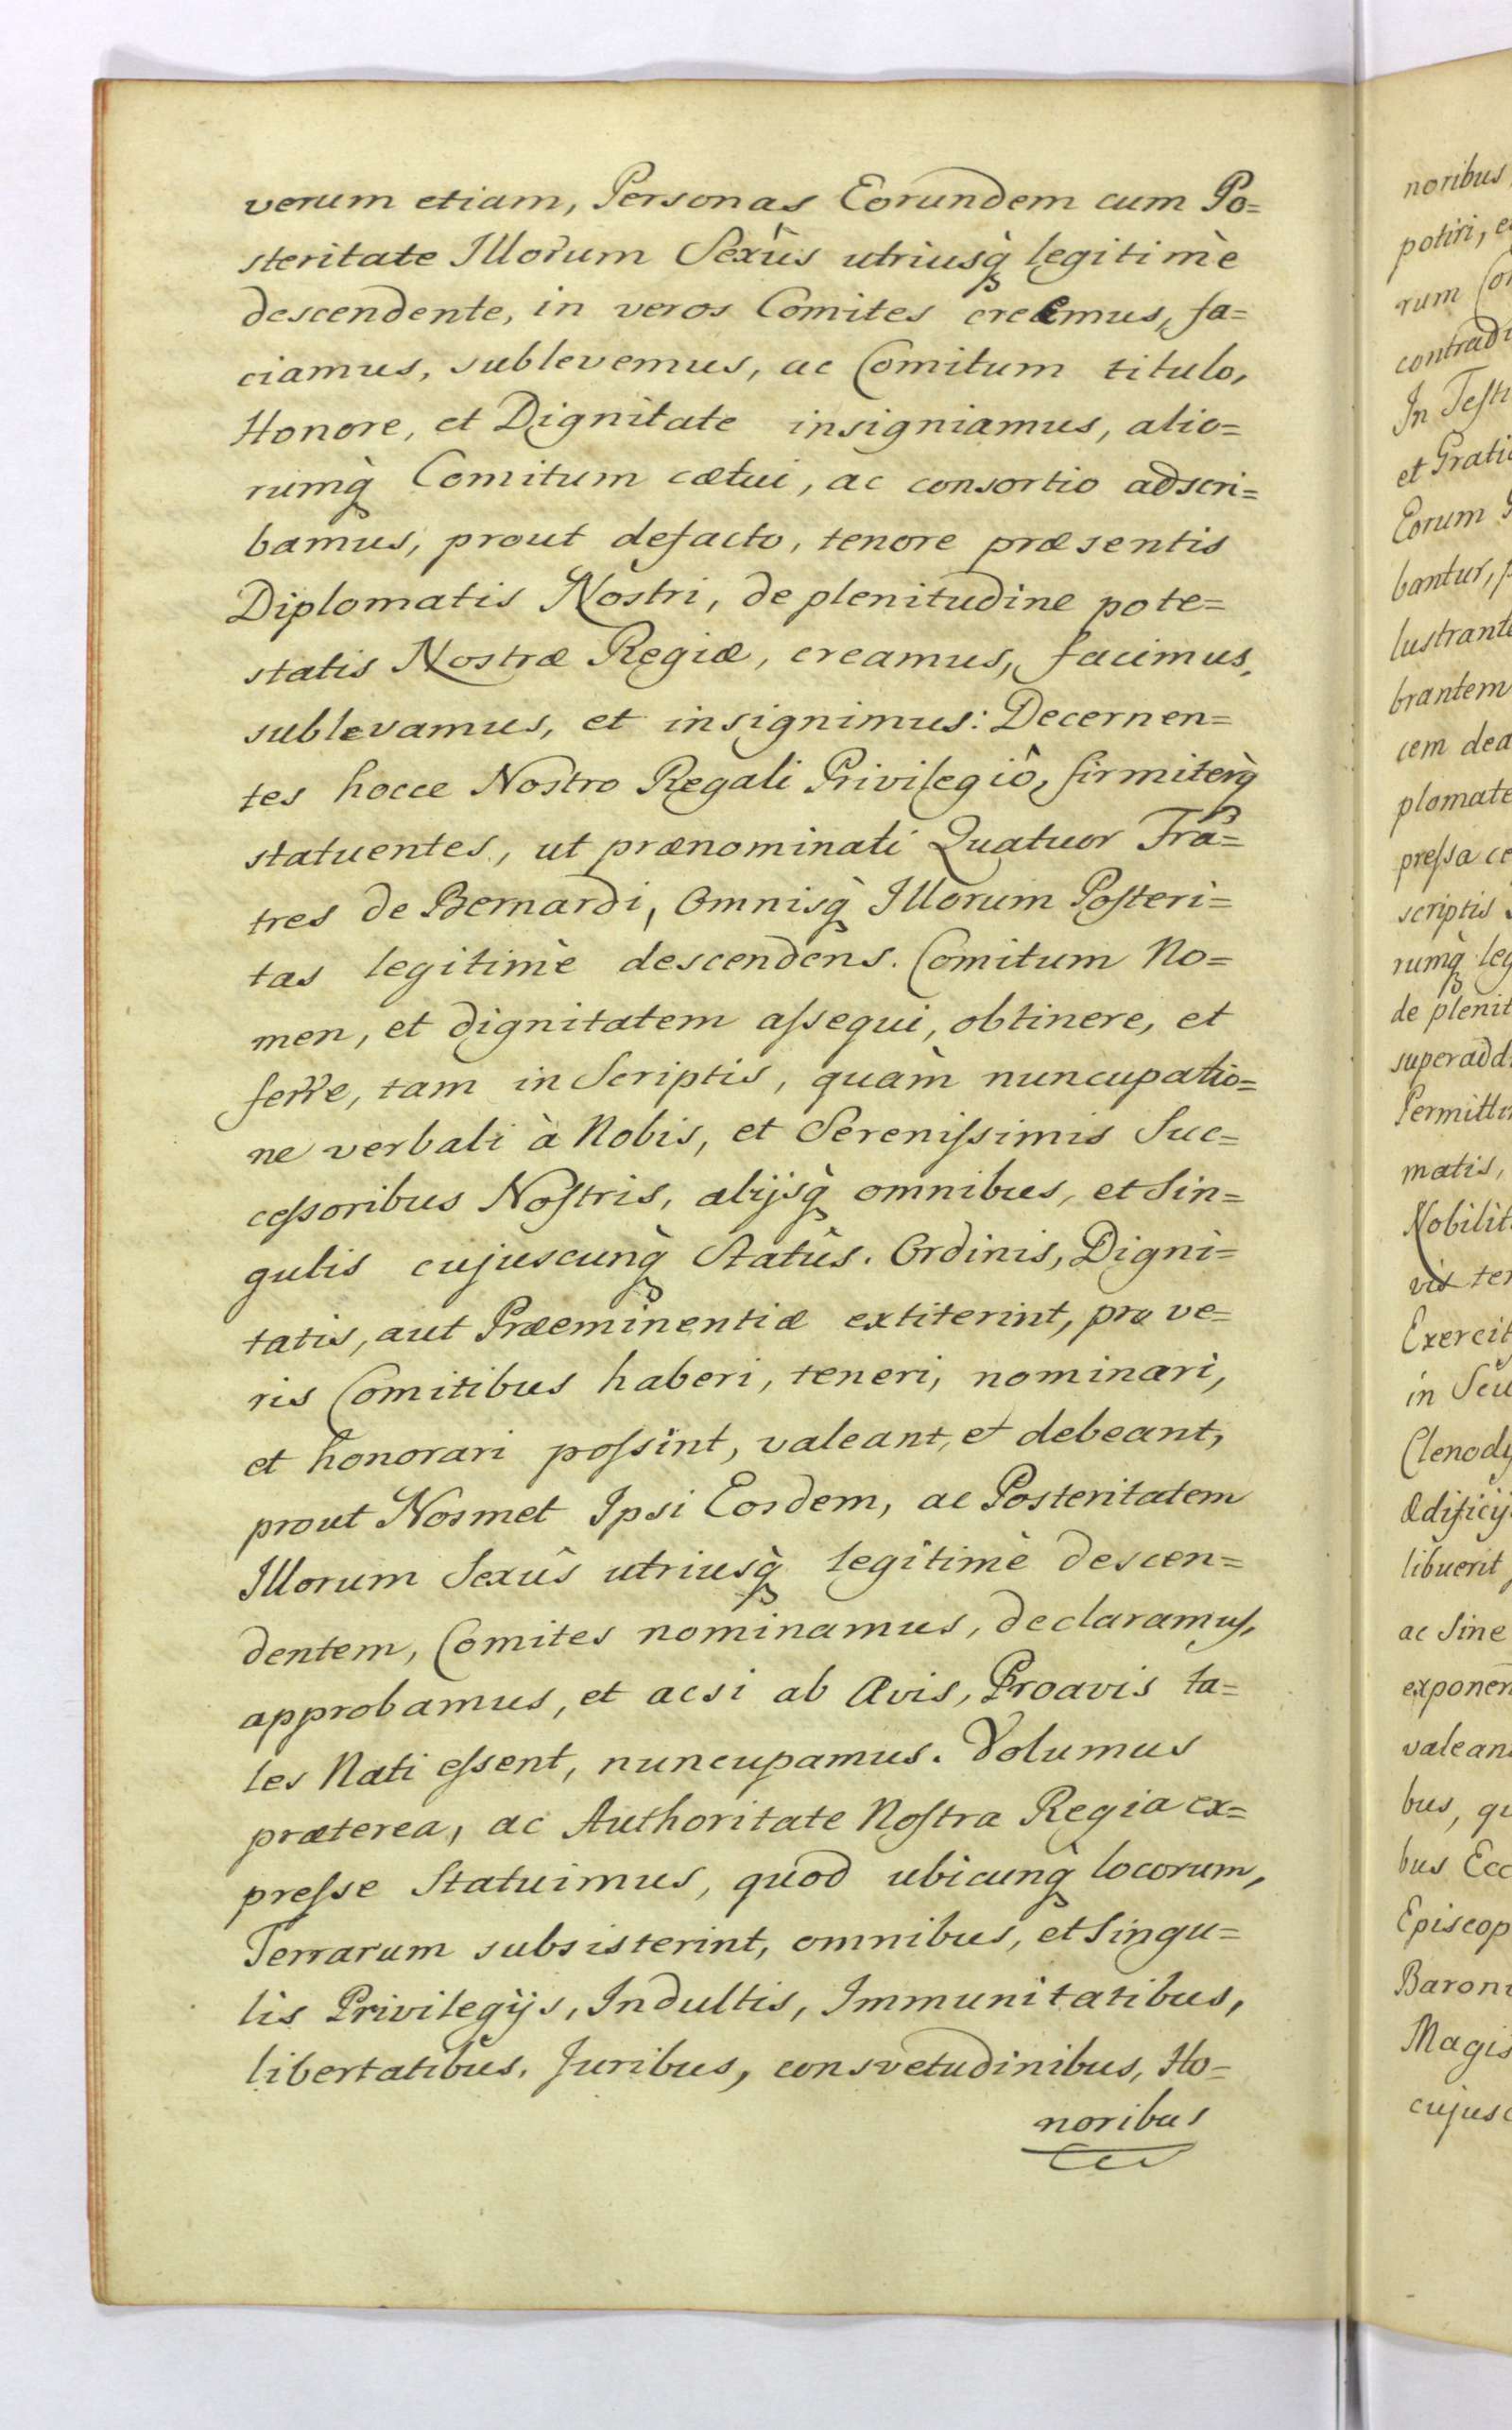 verum etiam, Personas Eorundem cum Po=
steritate Illorum Sexûs utriusq̀ legitimè
descendente, in veros Comites creemus, fa=
ciamus, sublevemus, ac Comitum titulo,
Honore, et Dignitate insigniamus, alio=
rumq̀ Comitum cætui, ac consortio adscri=
bamus, prout defacto, tenore præsentis
Diplomatis Nostri, de plenitudine pote=
statis Nostræ Regiæ, creamus, facimus,
sublevamus, et insignimus: Decernen=
tes hocce Nostro Regali Privilegiô, firmiterq̀
statuentes, ut prænominati Quatuor Fra=
tres de Bernardi, Omnisq̀ Illorum Posteri=
tas legitimè descendens. Comitum No=
men, et dignitatem aſsequi, obtinere, et
ferre, tam in Scriptis, quàm nuncupatio=
ne verbali à Nobis, et Sereniſsimis Suc=
ceſsoribus Noſtris, alijsq̀ omnibus, et Sin=
gulis cujuscunq̀ Statûs. Ordinis, Digni=
tatis, aut Præeminentiæ extiterint, pro ve=
ris Comitibus haberi, teneri, nominari,
et honorari poſsint, valeant, et debeant,
prout Nosmet Ipsi Eosdem, ac Posteritatem
Illorum Sexûs utriusq̀ legitimè descen=
dentem, Comites nominamus, declaramuſ,
approbamus, et acsi ab Avis, Proavis ta=
les Nati eſsent, nuncupamus. Volumus
præterea, ac Authoritate Noſtra Regia ex=
preſse Statuimus, quod ubicunq̀ locorum,
Terrarum subsisterint, omnibus, et Singu=
lis Privilegijs, Indultis, Immunitatibus,
libertatibus, Juribus, consvetudinibus, Ho=
noribus
noribus
potiri, e
rum Co
contradi
In Teſti
et Grati
Eorum
bantur, p
lustrant
brantem
cem dea
plomate
preſsa ce
scriptis
rumq̀ leg
de plenit
superadd
Permitti
matis,
Nobilit
vis ter
Exercit
in Scu
Clenody
Ædificij
libuerit
ac Sine
exponen
valean
bus, qu
bus Ecc
Episcop
Baroni
Magis
cujusc